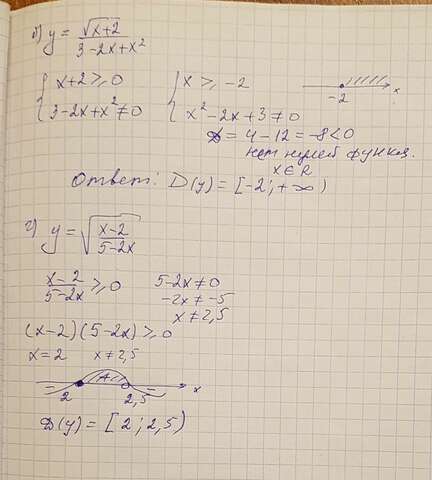 б) y = √(x+2) / (3-2x+x²)
{ x+2 ≥ 0 { x ≥ -2
3-2x+x² ≠ 0 x²-2x+3 ≠ 0
-2 x
D = 4-12 = -8 < 0
нет нулей функц.
x ∈ R
Ответ: D(y) = [-2; +∞)
г) y = √((x-2)/(5-2x))
(x-2)/(5-2x) ≥ 0 5-2x ≠ 0
-2x ≠ -5
x ≠ 2,5
(x-2)(5-2x) ≥ 0
x = 2 x ≠ 2,5
- + - x
2 2,5
D(y) = [2; 2,5)